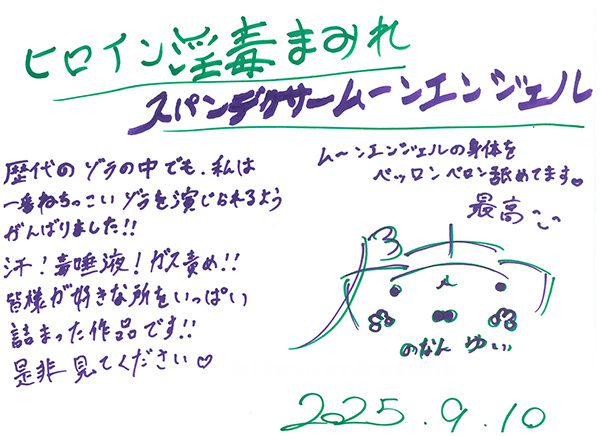 ヒロイン淫毒まみれ
スパンデクサームーンエンジェル
歴代のゾラの中でも、私は
一番ねちっこいゾラを演じられるよう
がんばりました!!
汗！毒唾液！ガス責め!!
皆様が好きな所をいっぱい
詰まった作品です!!
是非見てください♡
ムーンエンジェルの身体を
ペッロンペロン舐めてます♡
最高
のなんゆい
2025.9.10